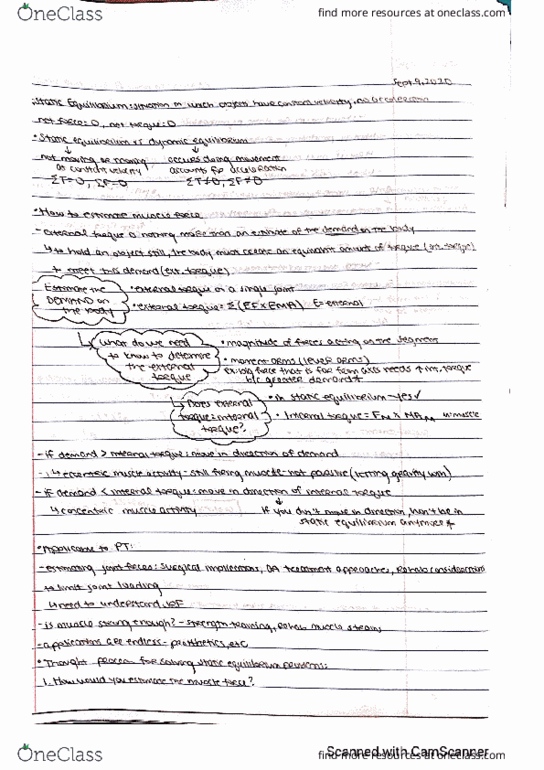 OneClass
find more resources at oneclass.com
Sept 9, 2020
Static Equilibrium: situation in which objects have constant velocity, no acceleration
net force = 0, net torque = 0
• Static equilibrium vs dynamic equilibrium
↓ ↓
not moving or moving occurs during movement
at constant velocity accounts for acceleration
ΣT=0, ΣF=0 ΣT≠0, ΣF≠0
• How to estimate muscle force
- external torque is nothing more than an estimate of the demand on the body
↳ to hold an object still, the body must create an equivalent amount of torque (int. torque)
to meet this demand (ext. torque)
Estimate the DEMAND on the body
• external torque on a single joint
• external torque = Σ(EF × EMA) E = external
↳ what do we need to know to determine the external torque
• magnitude of forces acting on the segment
• moment arms (lever arms)
force that is far from axis needs ↑ int. torque
b/c greater demand
↳ Does external torque = internal torque?
• in static equilibrium → yes ✓
• Internal torque = Fm × MAm m = muscle
- if demand > internal torque: move in direction of demand
↳ eccentric muscle activity - still firing muscle - not passive (letting gravity win)
- if demand < internal torque: move in direction of internal torque
↳ concentric muscle activity
↓
If you don't move in direction, won't be in
static equilibrium anymore
• Application to PT:
- estimating joint forces: surgical implications, OA treatment approaches, Rehab consideration
to limit joint loading
↳ need to understand
- is muscle strong enough? - strength training, Rehab muscle strains
- applications are endless - prosthetics, etc
• Thought process for solving static equilibrium problems:
1. How would you estimate the muscle force?
Scanned with CamScanner
OneClass
find more resources at oneclass.com